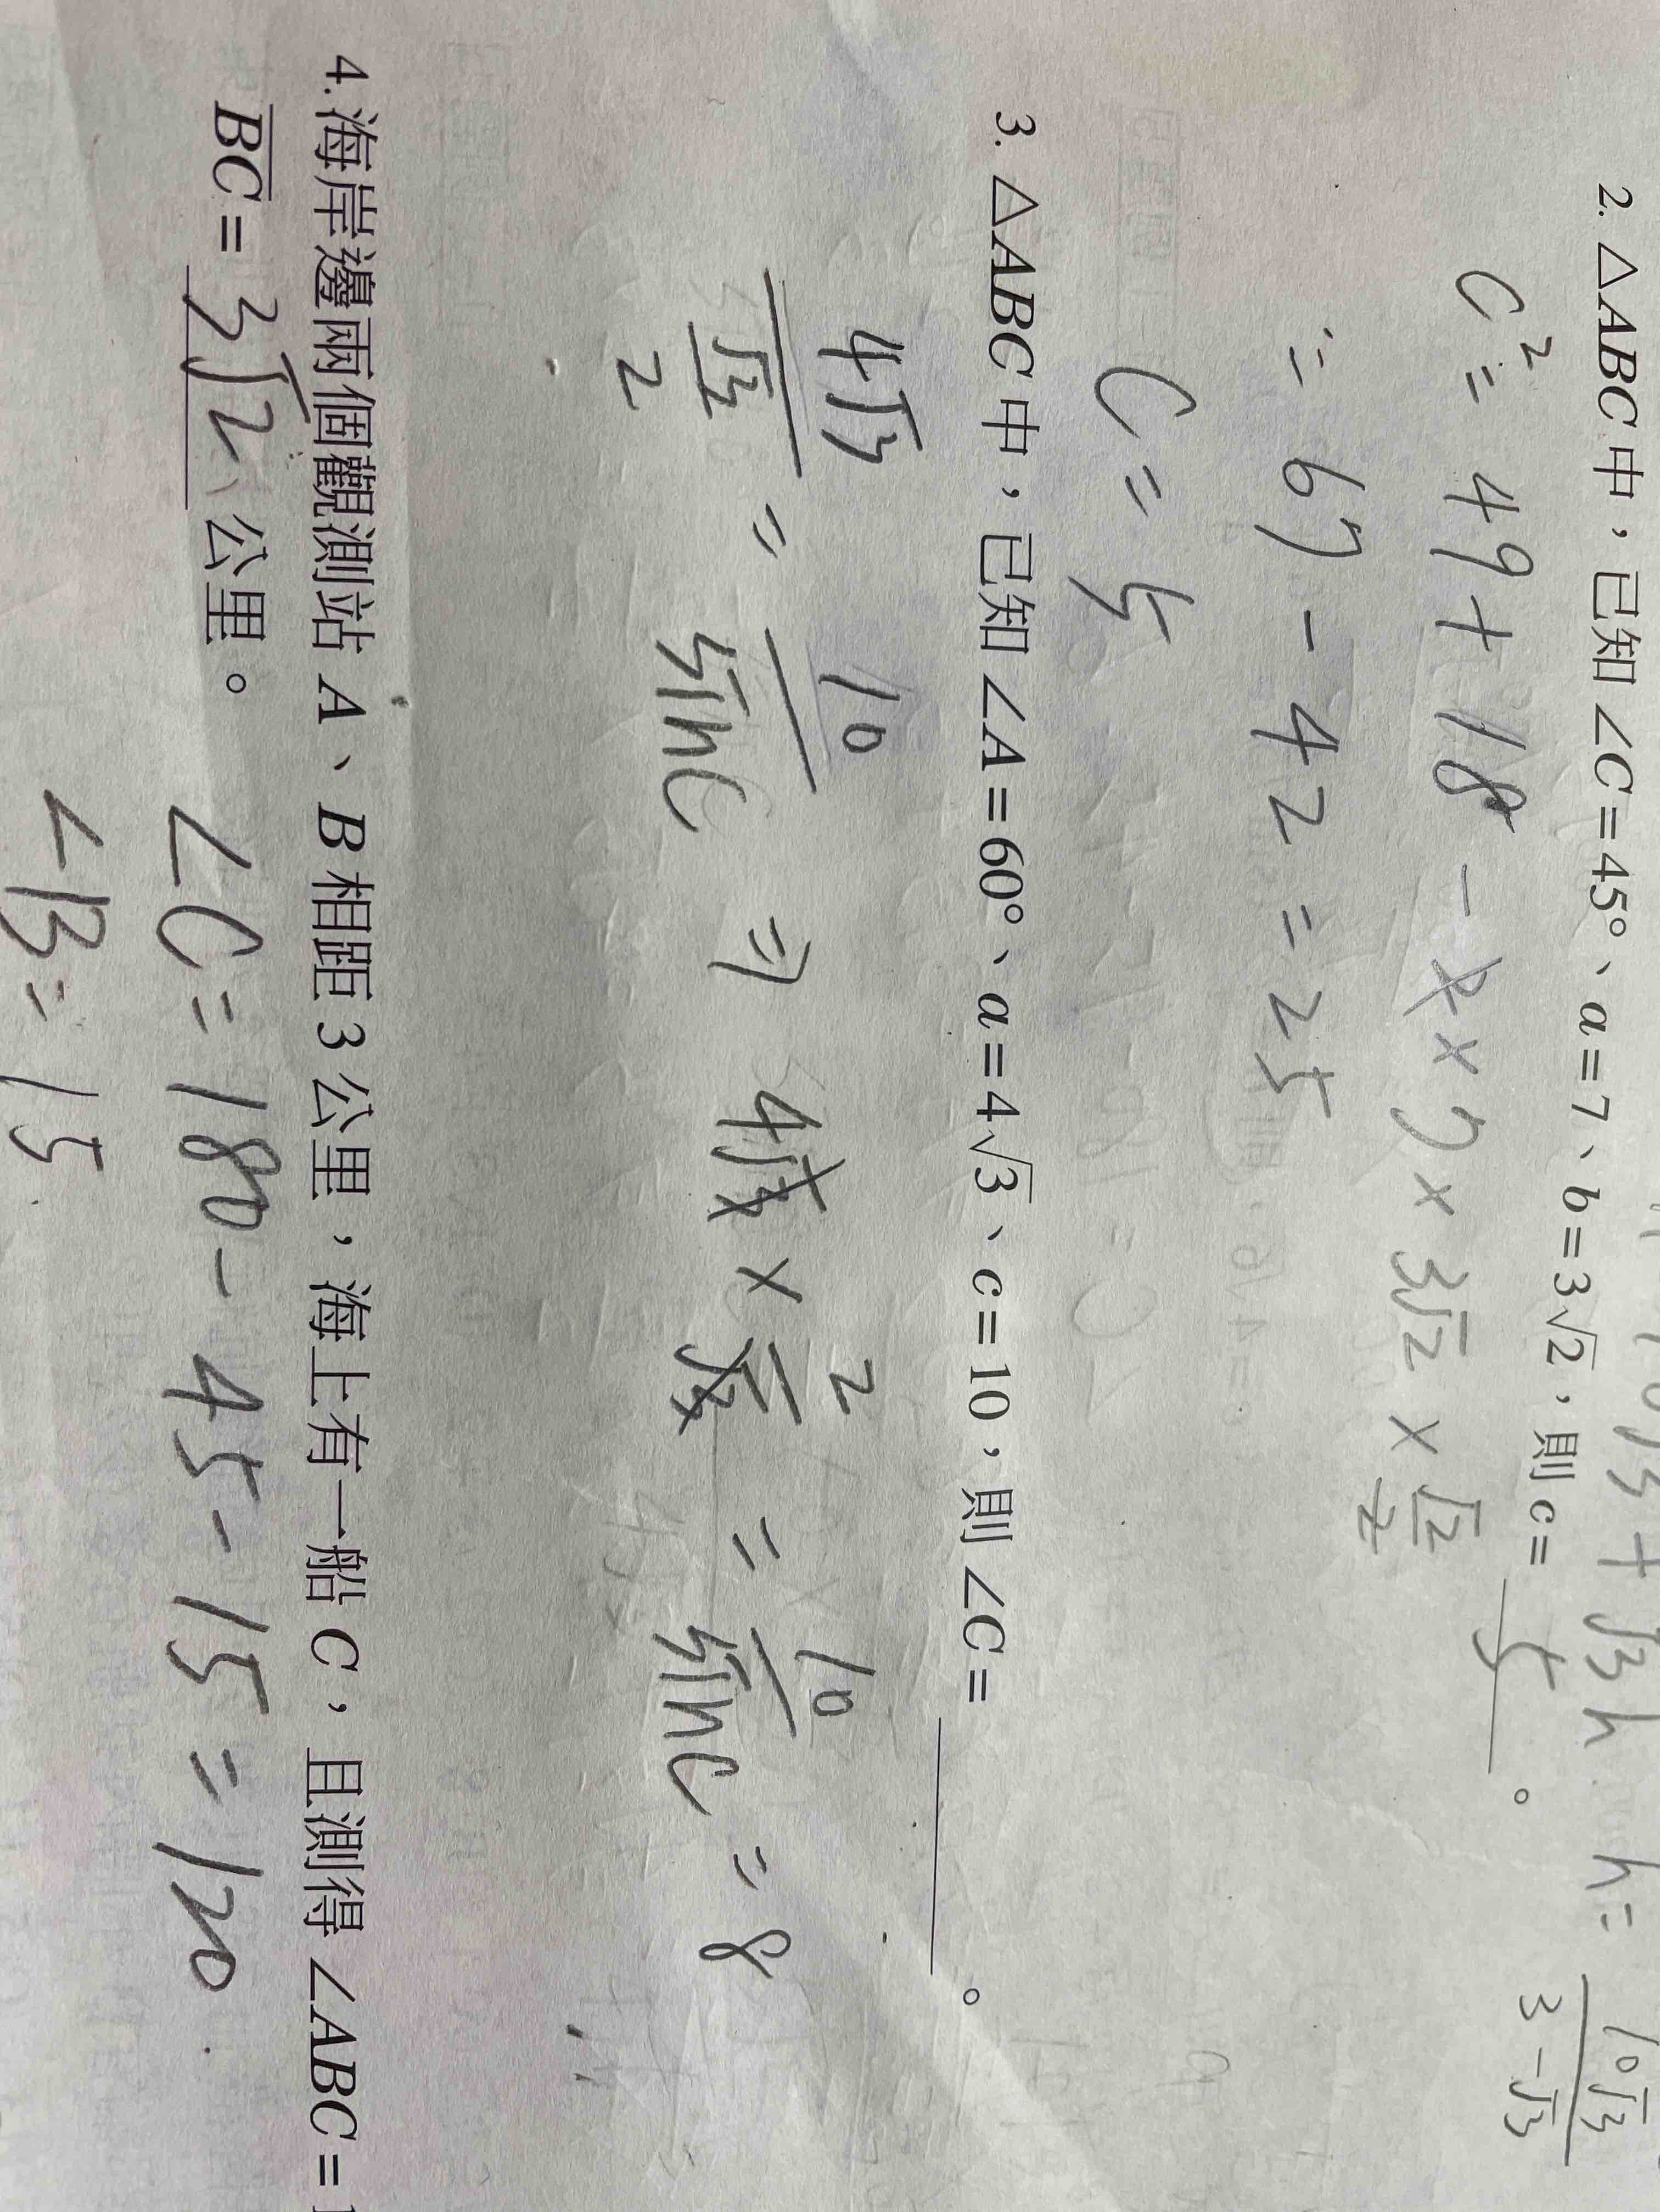 2. △ABC 中，已知 ∠C=45°、a=7、b=3√2，則 c= 5 。
c²= 49+18-2×7×3√2×√2/2
= 67-42=25
c=5
3. △ABC 中，已知 ∠A=60°、a=4√3、c=10，則 ∠C= 。
4√3/(√3/2) = 10/sinC ⇒ 4√3 × 2/√3 = 10/sinC = 8
4. 海岸邊兩個觀測站 A、B 相距 3 公里，海上有一船 C，且測得 ∠ABC=1
BC= 3√2 公里。
∠C=180-45-15=120
∠B=15
h= 10√3/(3-√3)